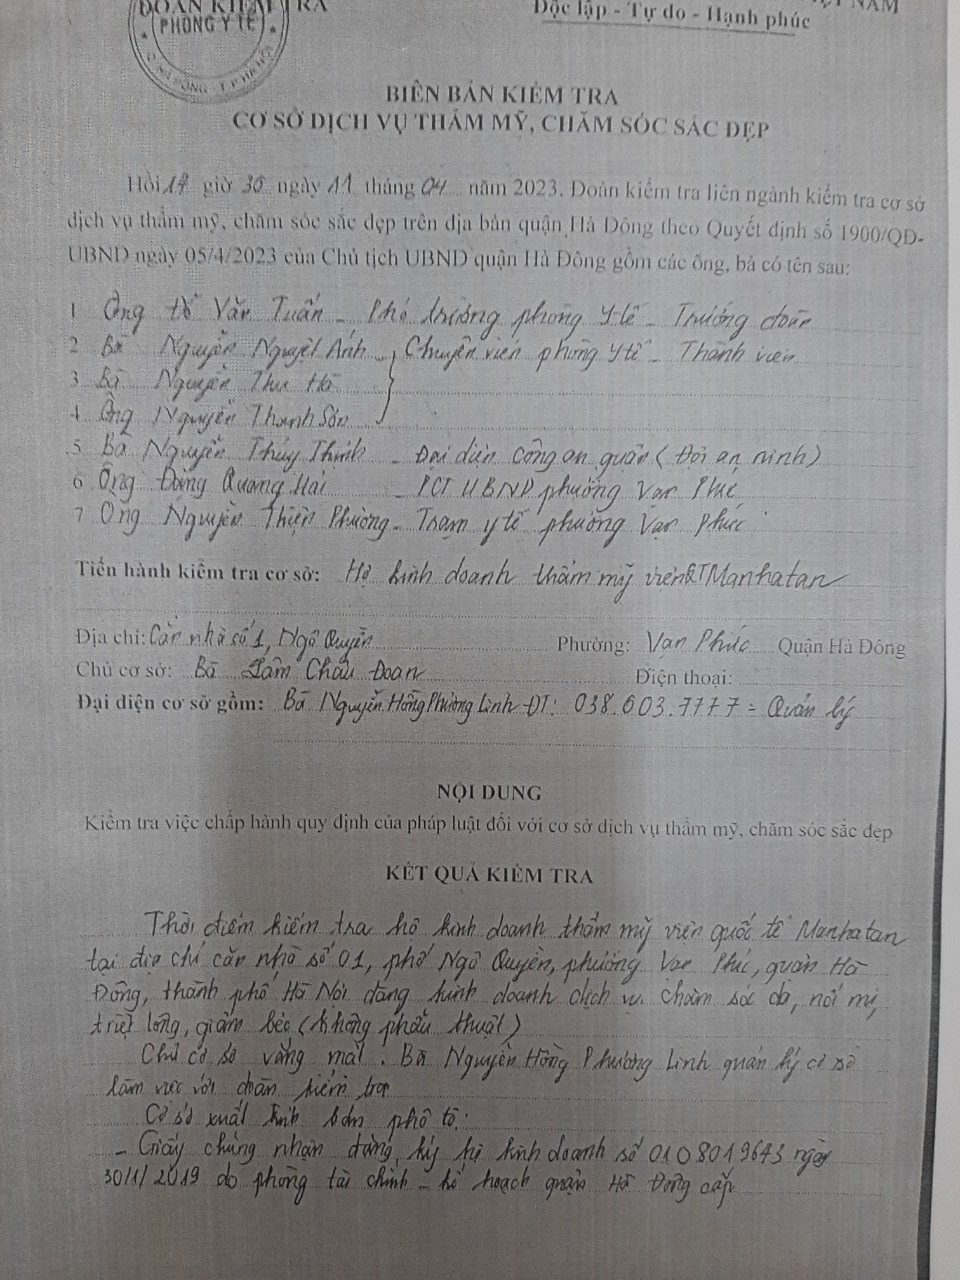 ĐOÀN KIỂM TRA
PHÒNG Y TẾ
VIỆT NAM
Độc lập - Tự do - Hạnh phúc
BIÊN BẢN KIỂM TRA
CƠ SỞ DỊCH VỤ THẨM MỸ, CHĂM SÓC SẮC ĐẸP
Hồi 17 giờ 30 ngày 11 tháng 04 năm 2023. Đoàn kiểm tra liên ngành kiểm tra cơ sở
dịch vụ thẩm mỹ, chăm sóc sắc đẹp trên địa bàn quận Hà Đông theo Quyết định số 1900/QĐ-
UBND ngày 05/4/2023 của Chủ tịch UBND quận Hà Đông gồm các ông, bà có tên sau:
1 Ông Văn Tuấn - Phó trưởng phòng Y tế - Trưởng đoàn
2 Bà Nguyễn Nguyệt Ánh } Chuyên viên phòng Y tế - Thành viên
3 Bà Nguyễn Thu Hà
4 Ông Nguyễn Thanh Sơn
5 Bà Nguyễn Thúy - Đại diện Công an quận (Đội an ninh)
6 Ông Đặng Quang Hải - PCT UBND phường Vạn Phúc
7 Ông Nguyễn Thiện Phường - Trạm y tế phường Vạn Phúc
Tiến hành kiểm tra cơ sở: Hộ kinh doanh thẩm mỹ viện QT Manhatan
Địa chỉ: Căn nhà số 1, Ngô Quyền Phường: Vạn Phúc Quận Hà Đông
Chủ cơ sở: Bà Lâm Châu Đoan Điện thoại:
Đại diện cơ sở gồm: Bà Nguyễn Hồng Phương Linh - ĐT: 038.603.7777 - Quản lý
NỘI DUNG
Kiểm tra việc chấp hành quy định của pháp luật đối với cơ sở dịch vụ thẩm mỹ, chăm sóc sắc đẹp
KẾT QUẢ KIỂM TRA
Thời điểm kiểm tra hộ kinh doanh thẩm mỹ viện quốc tế Manhatan
tại địa chỉ căn nhà số 01, phố Ngô Quyền, phường Vạn Phúc, quận Hà
Đông, thành phố Hà Nội đang kinh doanh dịch vụ chăm sóc da, nối mi,
triệt lông, giảm béo (không phẫu thuật)
Chủ cơ sở vắng mặt. Bà Nguyễn Hồng Phương Linh quản lý cơ sở
làm việc với đoàn kiểm tra
Cơ sở xuất trình bản phô tô:
- Giấy chứng nhận đăng ký hộ kinh doanh số 0108019643 ngày
30/1/2019 do phòng tài chính - kế hoạch quận Hà Đông cấp